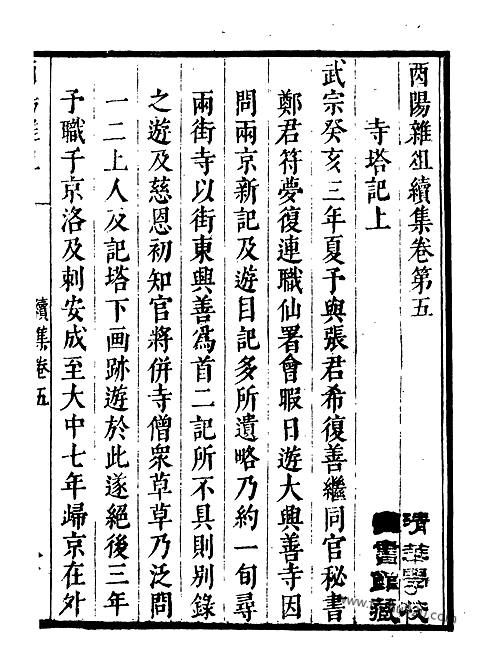 酉陽雜俎續集卷第五
寺塔記上
武宗癸亥三年夏予與張君希復善繼同官秘書
鄭君符夢復連職仙署會暇日遊大興善寺因
問兩京新記及遊目記多所遺略乃約一旬尋
兩街寺以街東興善爲首二記所不具則別錄
之遊及慈恩初知官將併寺僧衆草草乃泛問
一二上人及記塔下画跡遊於此遂絕後三年
予職于京洛及刺安成至大中七年歸京在外
續集卷五
清華學校
圖書館藏